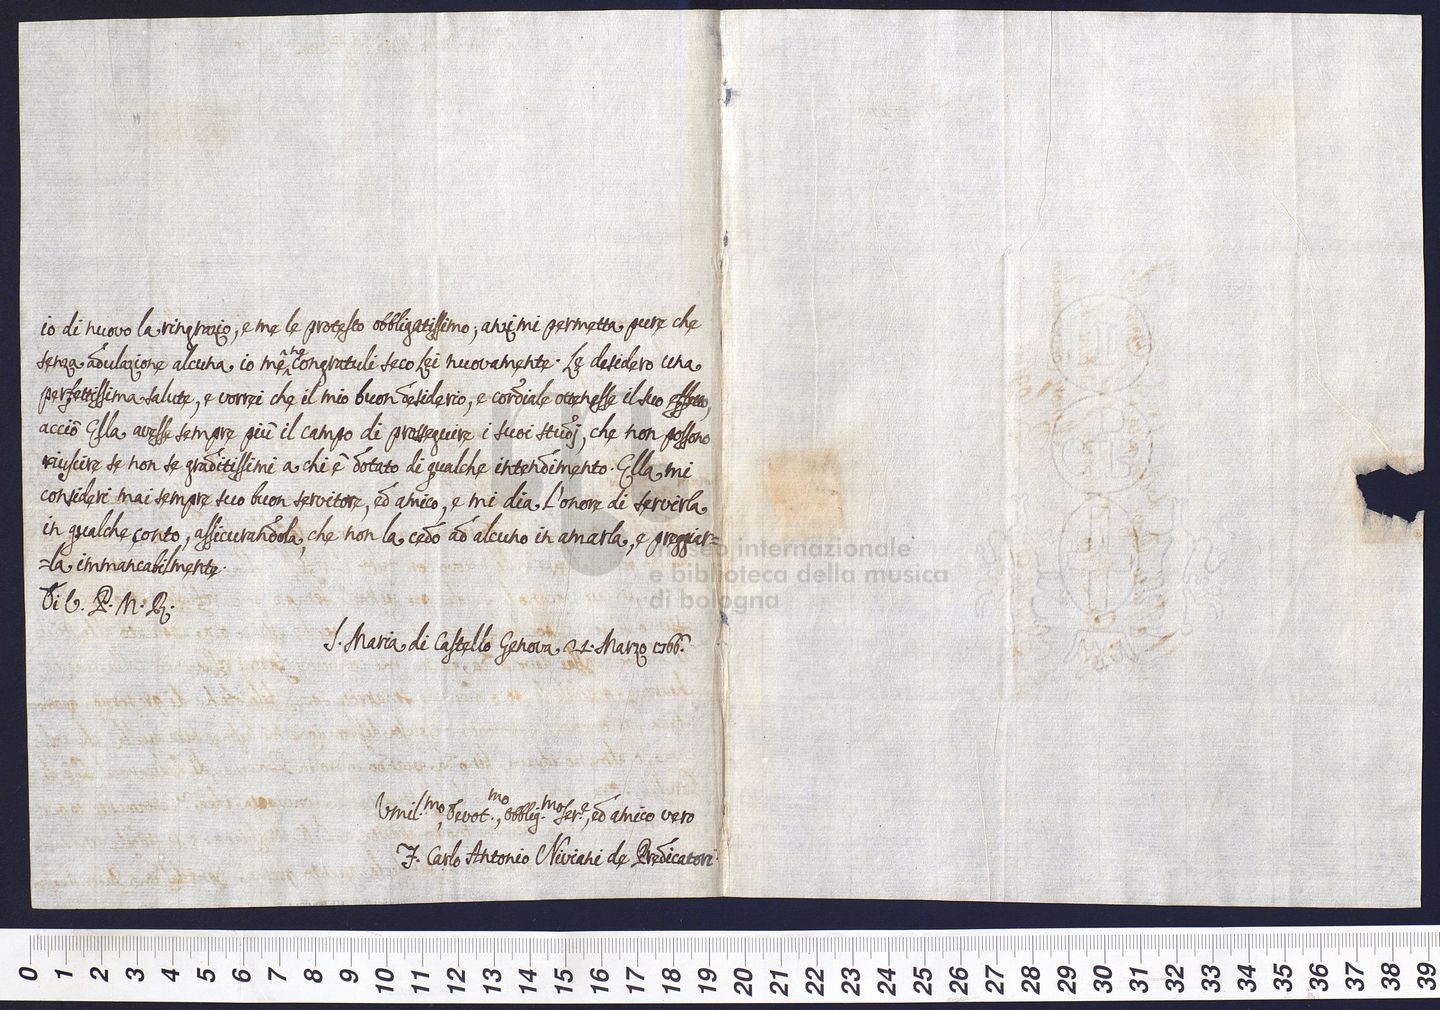 io di nuovo la ringrazio, e me le protesto obbligatissimo; anzi mi permetta pure che
senza adulazione alcuna io me ne congratuli seco Lei nuovamente. Le desidero una
perfettissima salute, e vorrei che il mio buon desiderio, e cordiale ottenesse il suo effetto,
acciò Ella avesse sempre più il campo di prosseguire i suoi studj, che non possono
riuscire se non se graditissimi a chi è dotato di qualche intendimento. Ella mi
consideri mai sempre suo buon servitore, ed amico, e mi dia l'onore di servirla
in qualche conto, assicurandola, che non la cedo ad alcuno in amarla, e preggiar=
=la immancabilmente.
Di V. P. M. R.
S. Maria di Castello Genova 21. Marzo 1766.
Umil.mo, Devot.mo, Obblig.mo Ser.e, ed amico vero
F. Carlo Antonio Niviani de Predicatori
museo internazionale
e biblioteca della musica
di bologna
0 1 2 3 4 5 6 7 8 9 10 11 12 13 14 15 16 17 18 19 20 21 22 23 24 25 26 27 28 29 30 31 32 33 34 35 36 37 38 39